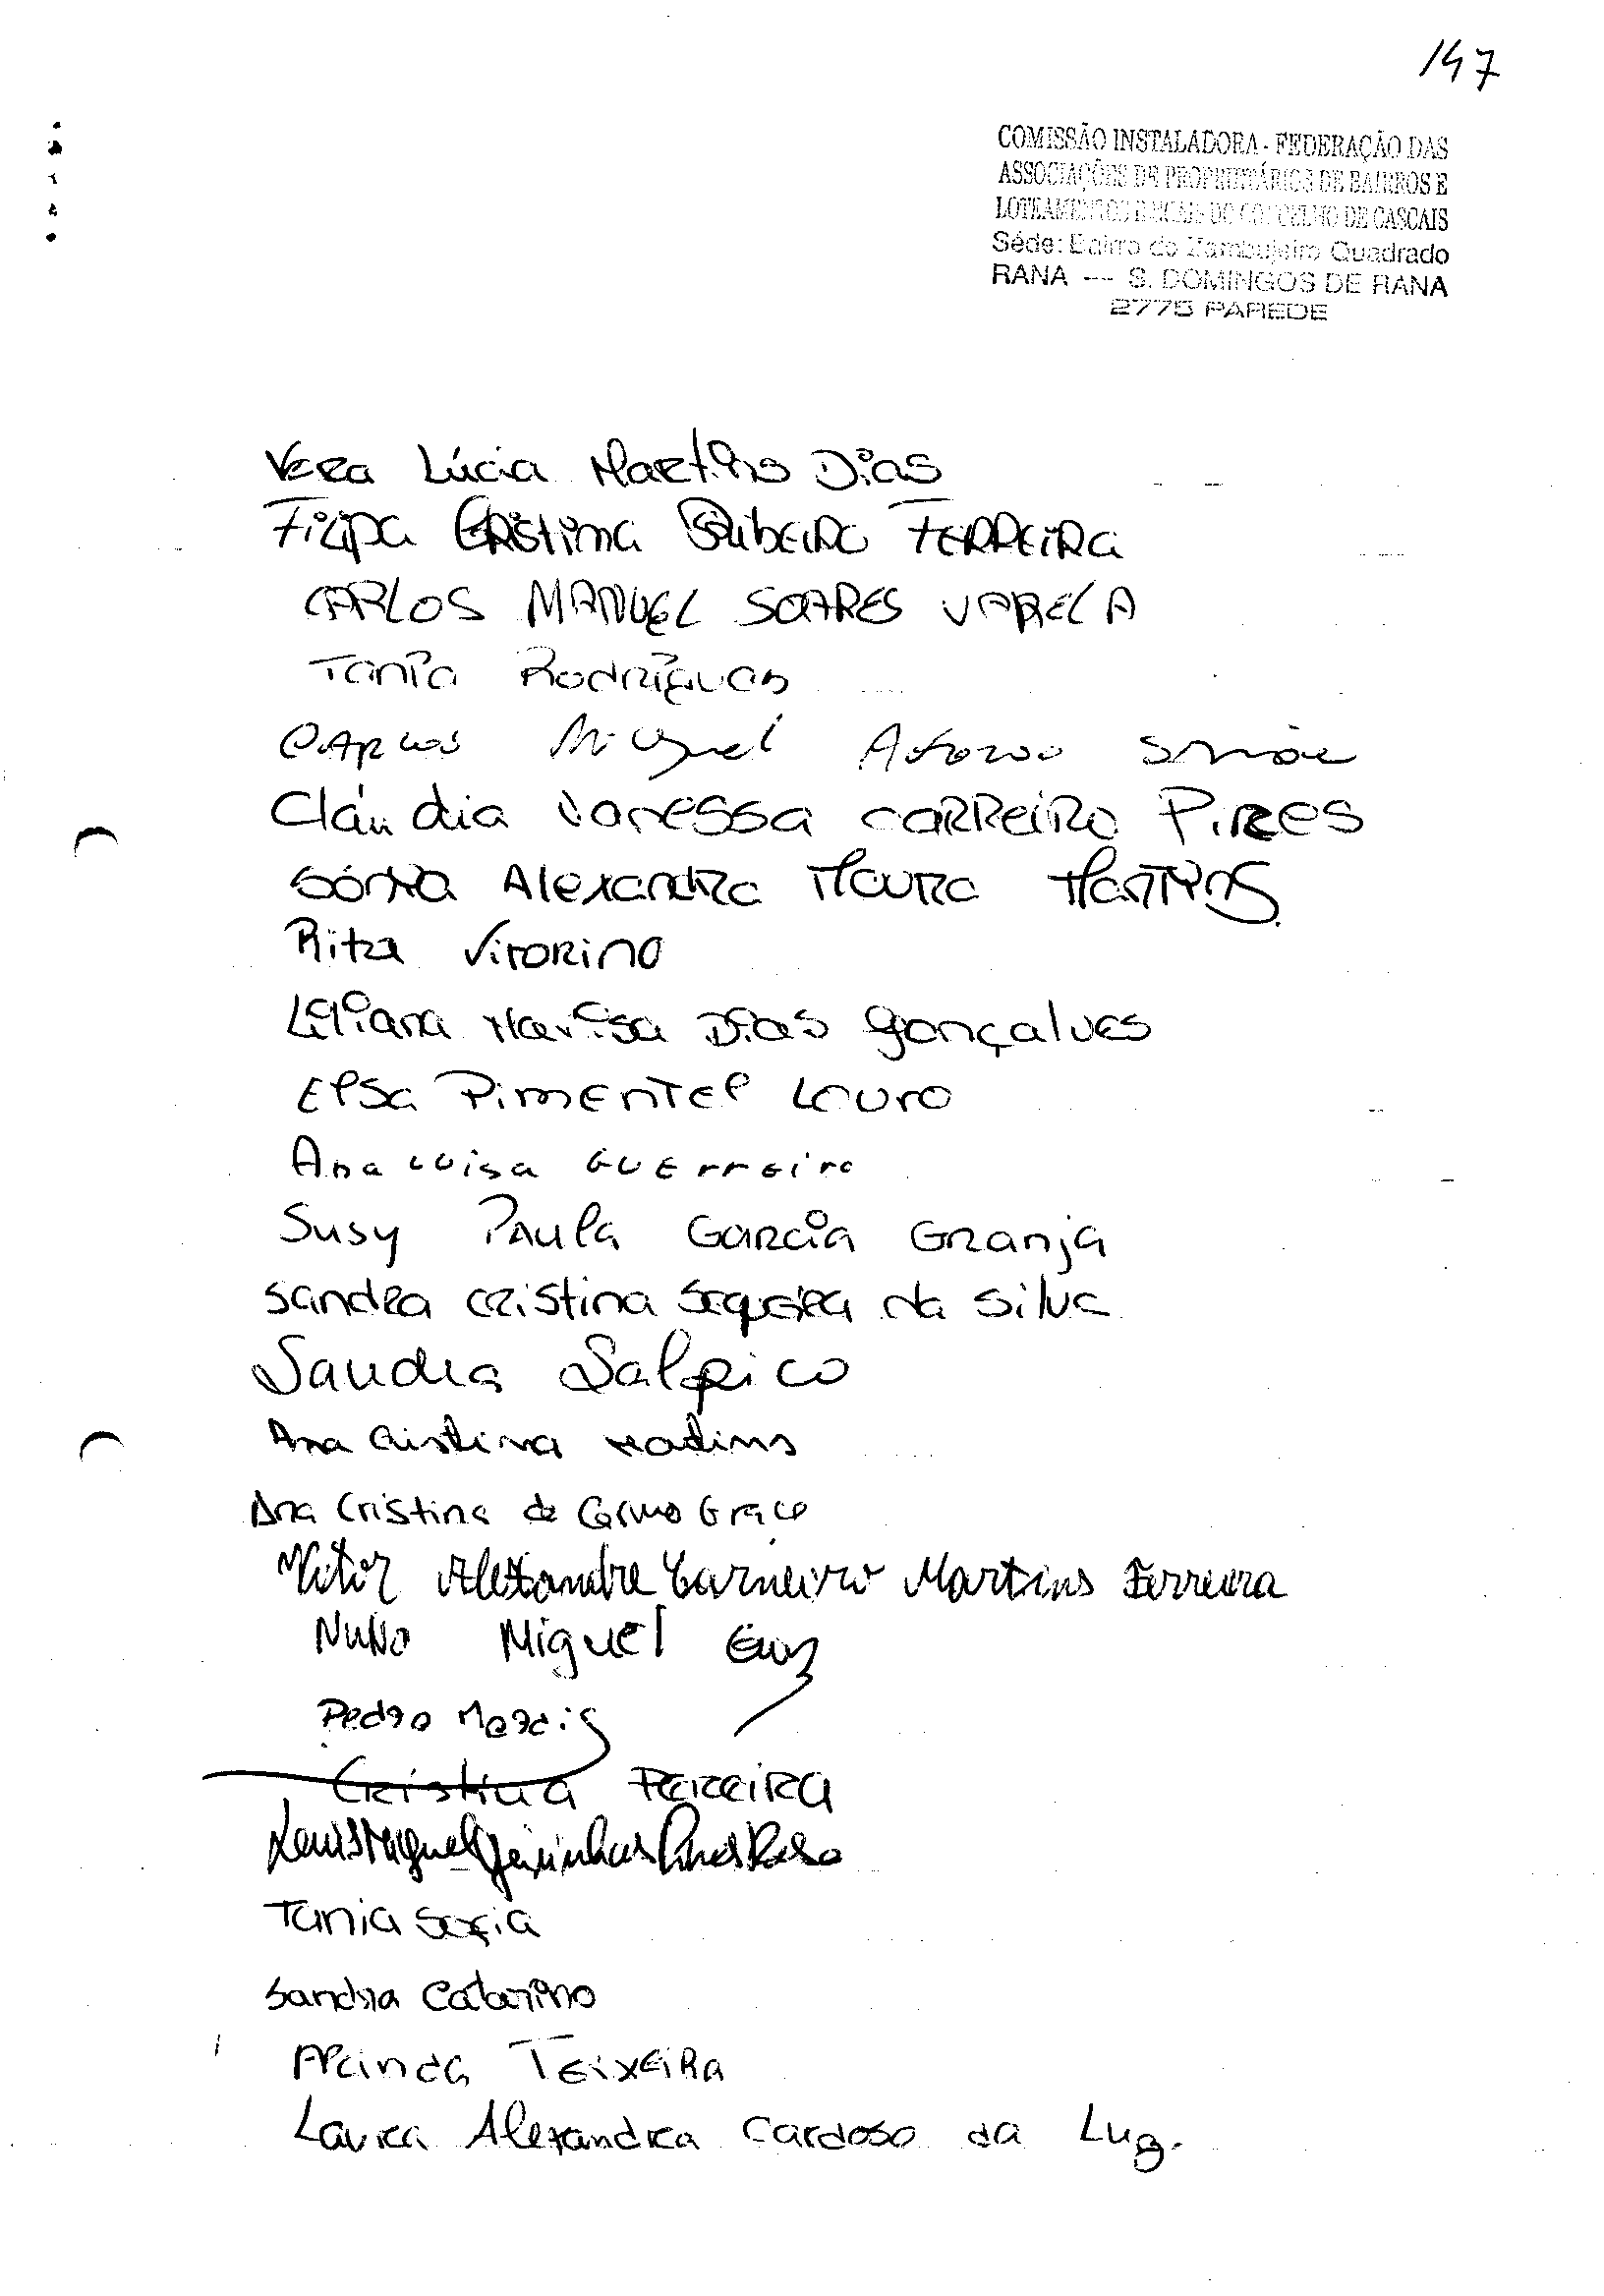 147
COMISSÃO INSTALADORA - FEDERAÇÃO DAS
ASSOCIAÇÕES DE PROPRIETÁRIOS DE BAIRROS E
LOTEAMENTOS DO CONCELHO DE CASCAIS
Séde: Bairro do Zambujeiro Quadrado
RANA --- S. DOMINGOS DE RANA
2775 PAREDE
Vera Lúcia Martins Dias
Filipa Cristina Ribeiro Ferreira
CARLOS MANUEL SOARES VARELA
Tania Rodrigues
Carlos Miguel Afonso Simões
Cláudia Vanessa Carreiro Pires
Sónia Alexandra Moura Martins
Rita Vitorino
Liliana Marisa Dias Gonçalves
Elsa Pimentel Louro
Ana Luisa Guerreiro
Susy Paula Garcia Granja
Sandra Cristina Sequeira da Silva
Sandra Salpico
Ana Cristina Martins
Ana Cristina do Carmo
Vitor Alexandre Carneiro Martins Ferreira
Nuno Miguel
Pedro Morais
Cristina Ferreira
Luis Miguel
Tania Sofia
Sandra Catarino
Alcinda Teixeira
Laura Alexandra Cardoso da Luz.